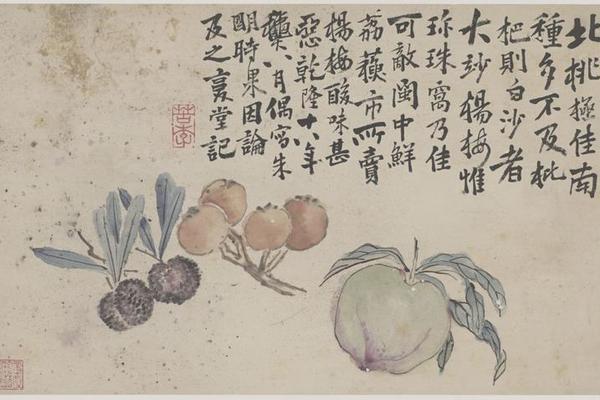 北桃極佳南
種多不及枇
杷則白沙者
大妙楊梅惟
珎珠窩乃佳
可敵閩中鮮
荔蘓市所賣
楊梅酸味甚
惡乾隆十八年
八月偶寫朱
明時果因論
及之堂記
苦李